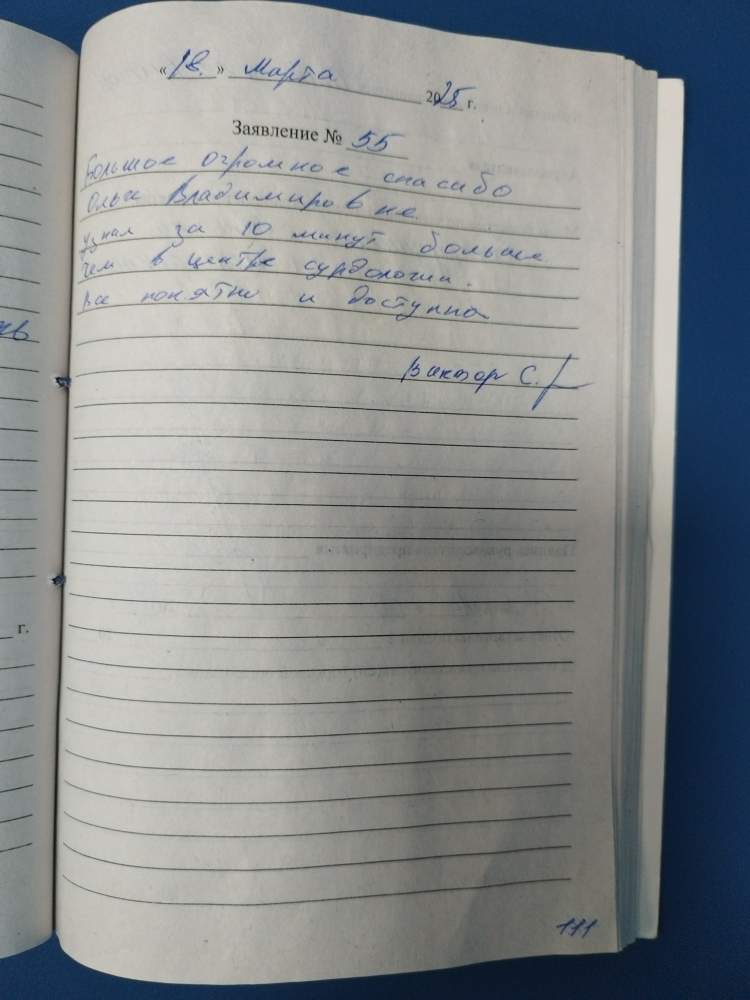 « 18. » Марта 2025 г.
Заявление № 55
Большое огромное спасибо
Ольге Владимировне
узнал за 10 минут больше
чем в центре сурдологии.
Все понятно и доступна
Виктор С.
г.
111